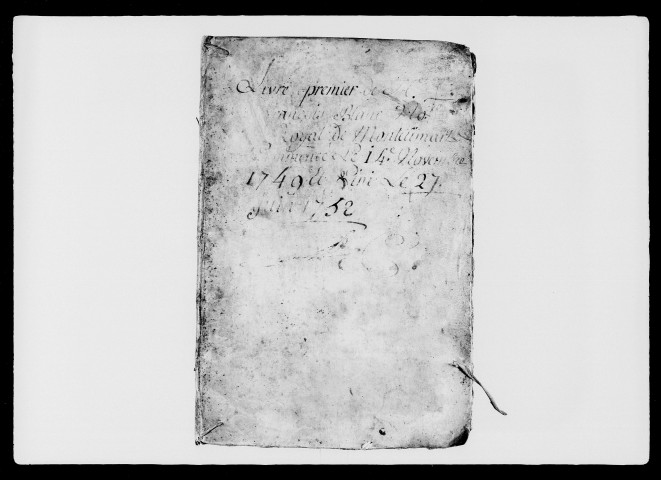 Livre premier de
françois Blanc
Royal de Montelimart
Commencé Le 14e Novembre
1749 et fini Le 27
1752